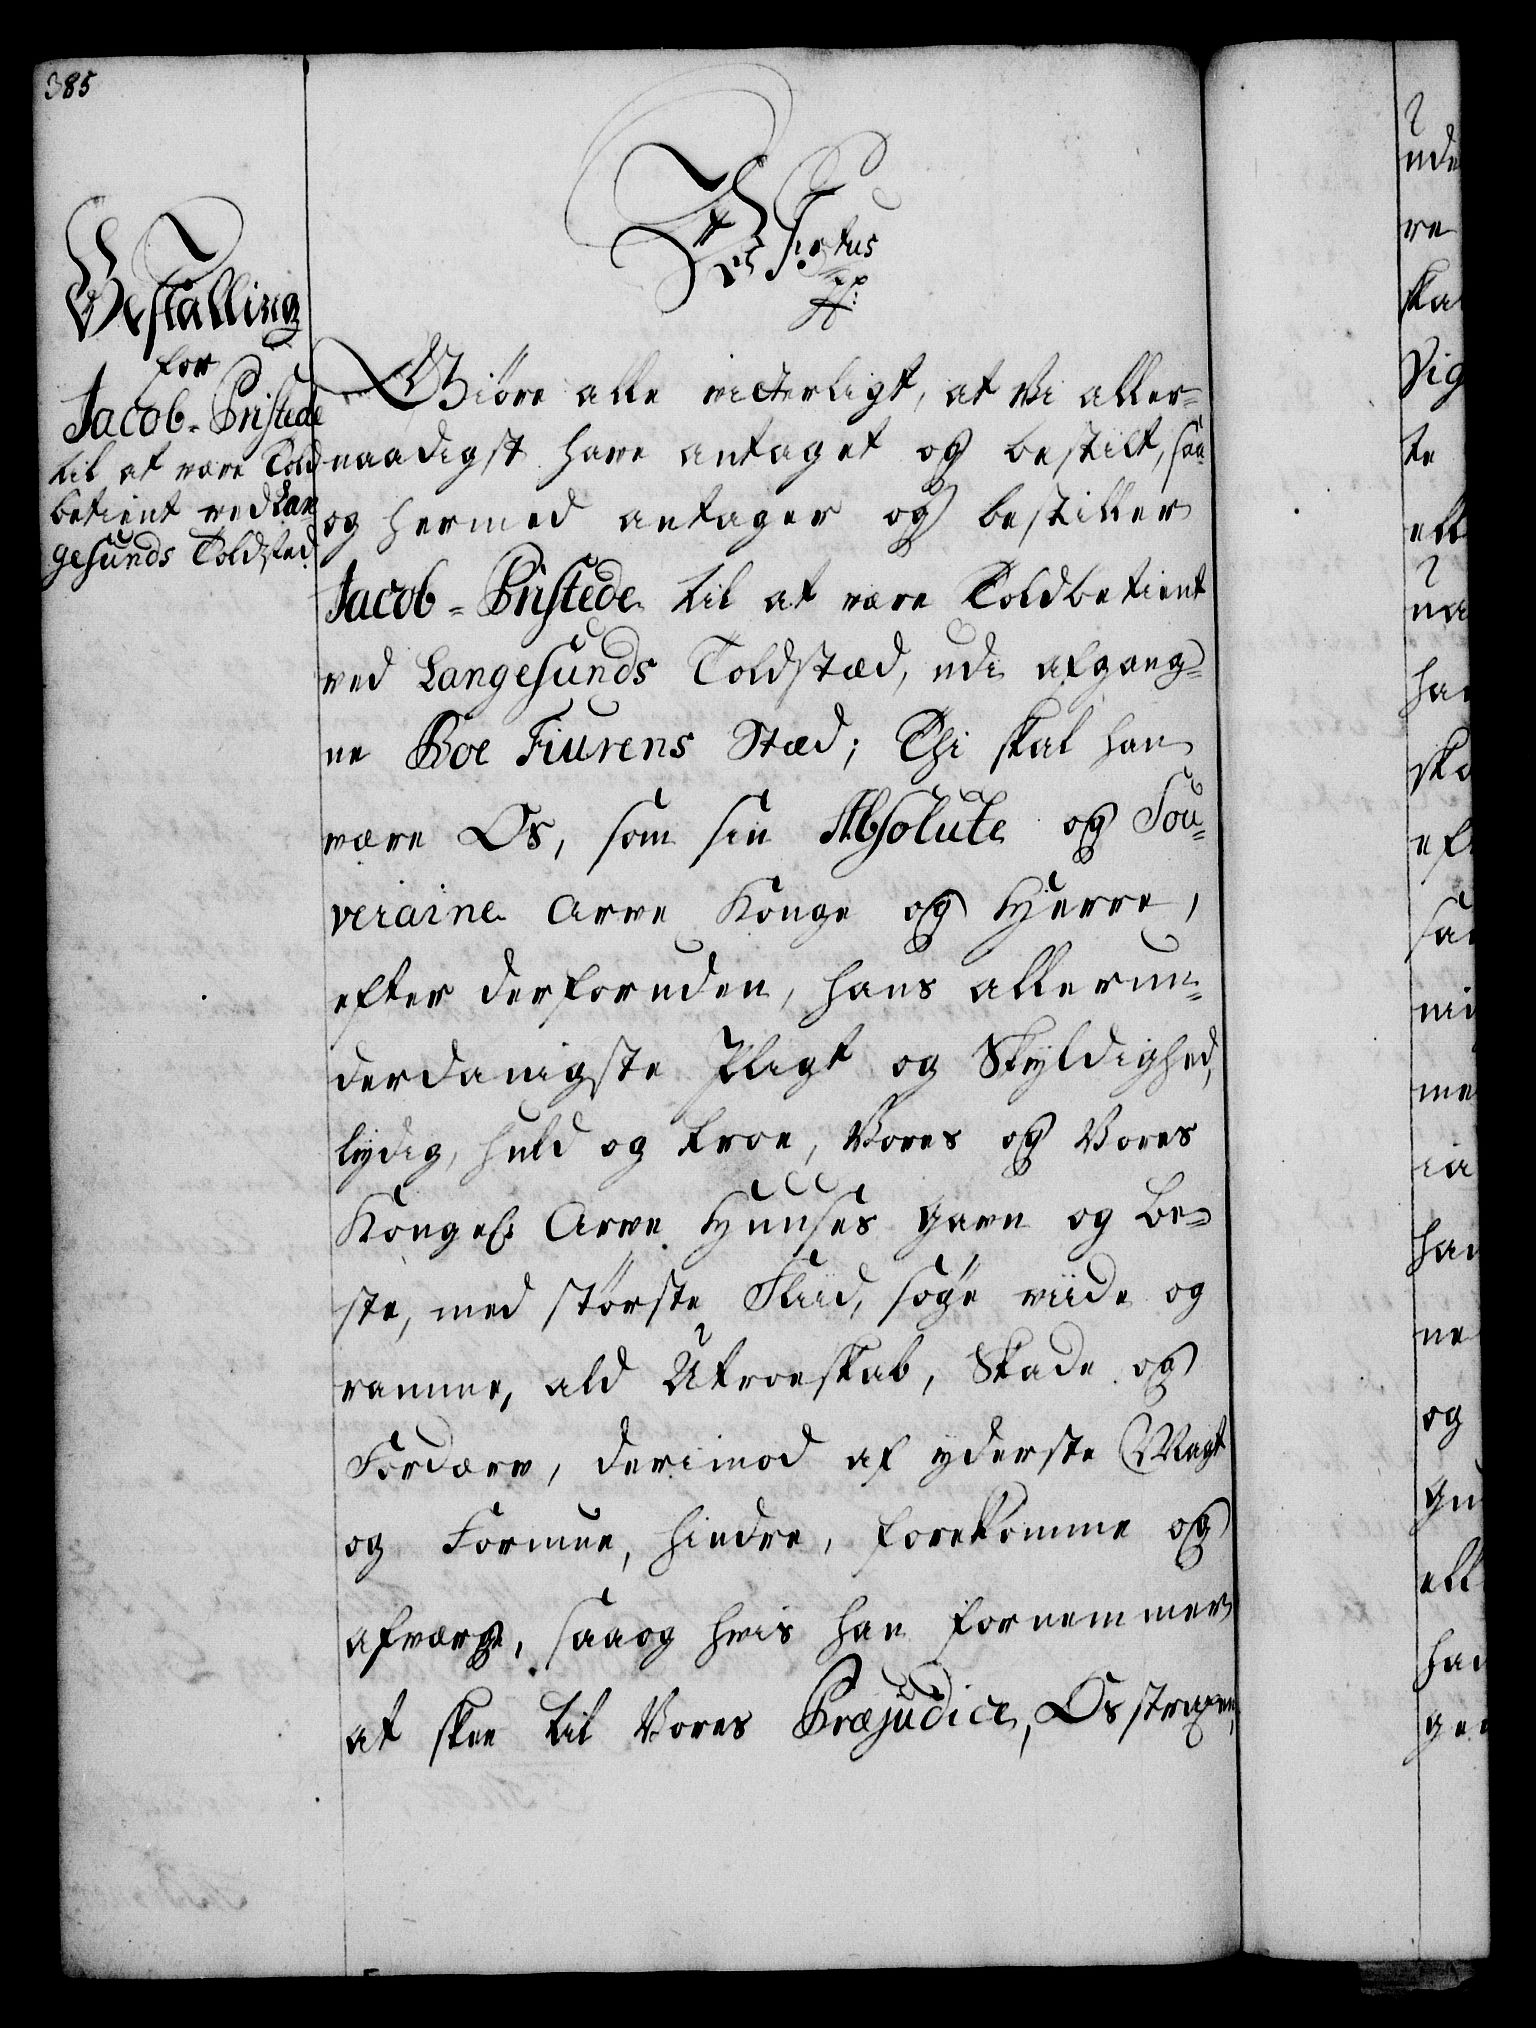 385
Bestalling
for
Jacob-Pristede
til at være Told
betient ved Lan
gesunds Toldsted.
Giöre alle vitterligt, at Vi aller=
naadigst have antaget og bestilt, saa
og hermed antager og bestiller
Jacob-Pristede til at være Toldbetient
ved Langesunds Toldstæd, udi afgang=
ne Boe Fiurens Stæd; Thi skal han
være Os, som sin Absolute og Sou=
veraine Arve Konge og Herre,
efter derforuden, hans allerun=
derdanigste Pligt og Skyldighed,
lydig, huld og troe, Vores og Vores
Kongel: Arve Huuses gavn og be=
ste, med største Fliid, søge viide og
ramme, ald Utroeskab, Skade og
Fordærv, derimod af yderste Magt
og Formue, hindre, forekomme og
afværge, saa og hvis han fornemmer
at skee til Vores Præjudice, Os strapen,
ude
re
ska
te
ell
na
han
ska
eft
saa
me
han
ne
og
ell
han